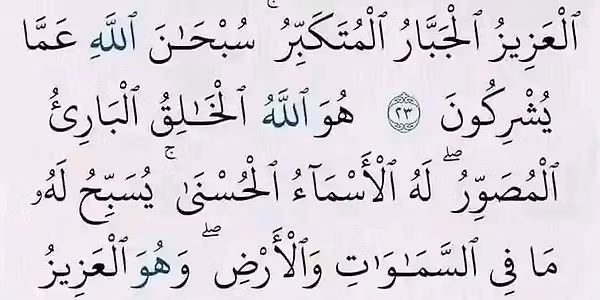 ٱلْعَزِيزُ ٱلْجَبَّارُ ٱلْمُتَكَبِّرُ ۚ سُبْحَـٰنَ ٱللَّهِ عَمَّا
يُشْرِكُونَ ٢٣ هُوَ ٱللَّهُ ٱلْخَـٰلِقُ ٱلْبَارِئُ
ٱلْمُصَوِّرُ ۖ لَهُ ٱلْأَسْمَآءُ ٱلْحُسْنَىٰ ۚ يُسَبِّحُ لَهُۥ
مَا فِى ٱلسَّمَـٰوَٰتِ وَٱلْأَرْضِ ۖ وَهُوَ ٱلْعَزِيزُ